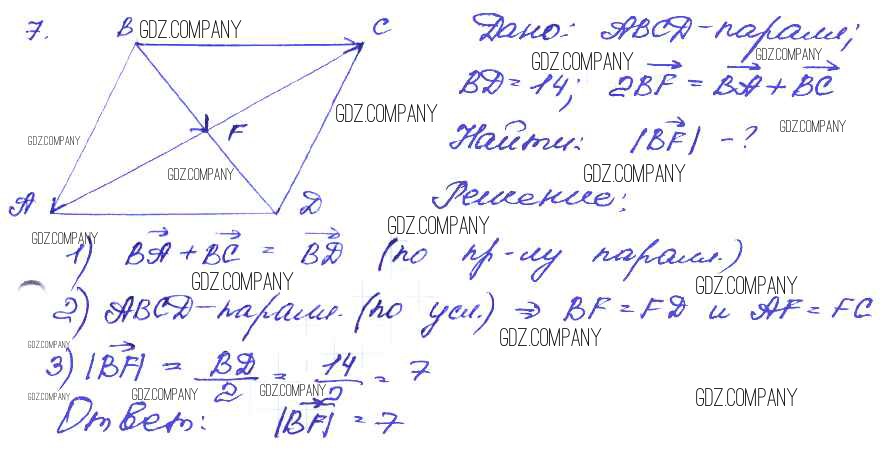 7. B GDZ.COMPANY C Дано: ABCD-паралл;
GDZ.COMPANY GDZ.COMPANY
BD=14; 2BF = BA + BC
GDZ.COMPANY F GDZ.COMPANY
GDZ.COMPANY Найти: |BF| - ?
GDZ.COMPANY GDZ.COMPANY
A D Решение:
GDZ.COMPANY GDZ.COMPANY
1) BA + BC = BD (по пр-лу паралл.)
GDZ.COMPANY GDZ.COMPANY
2) ABCD-паралл. (по усл.) ⇒ BF = FD и AF = FC
GDZ.COMPANY GDZ.COMPANY
3) |BF| = BD/2 = 14/2 = 7
GDZ.COMPANY GDZ.COMPANY GDZ.COMPANY GDZ.COMPANY
Ответ: |BF| = 7